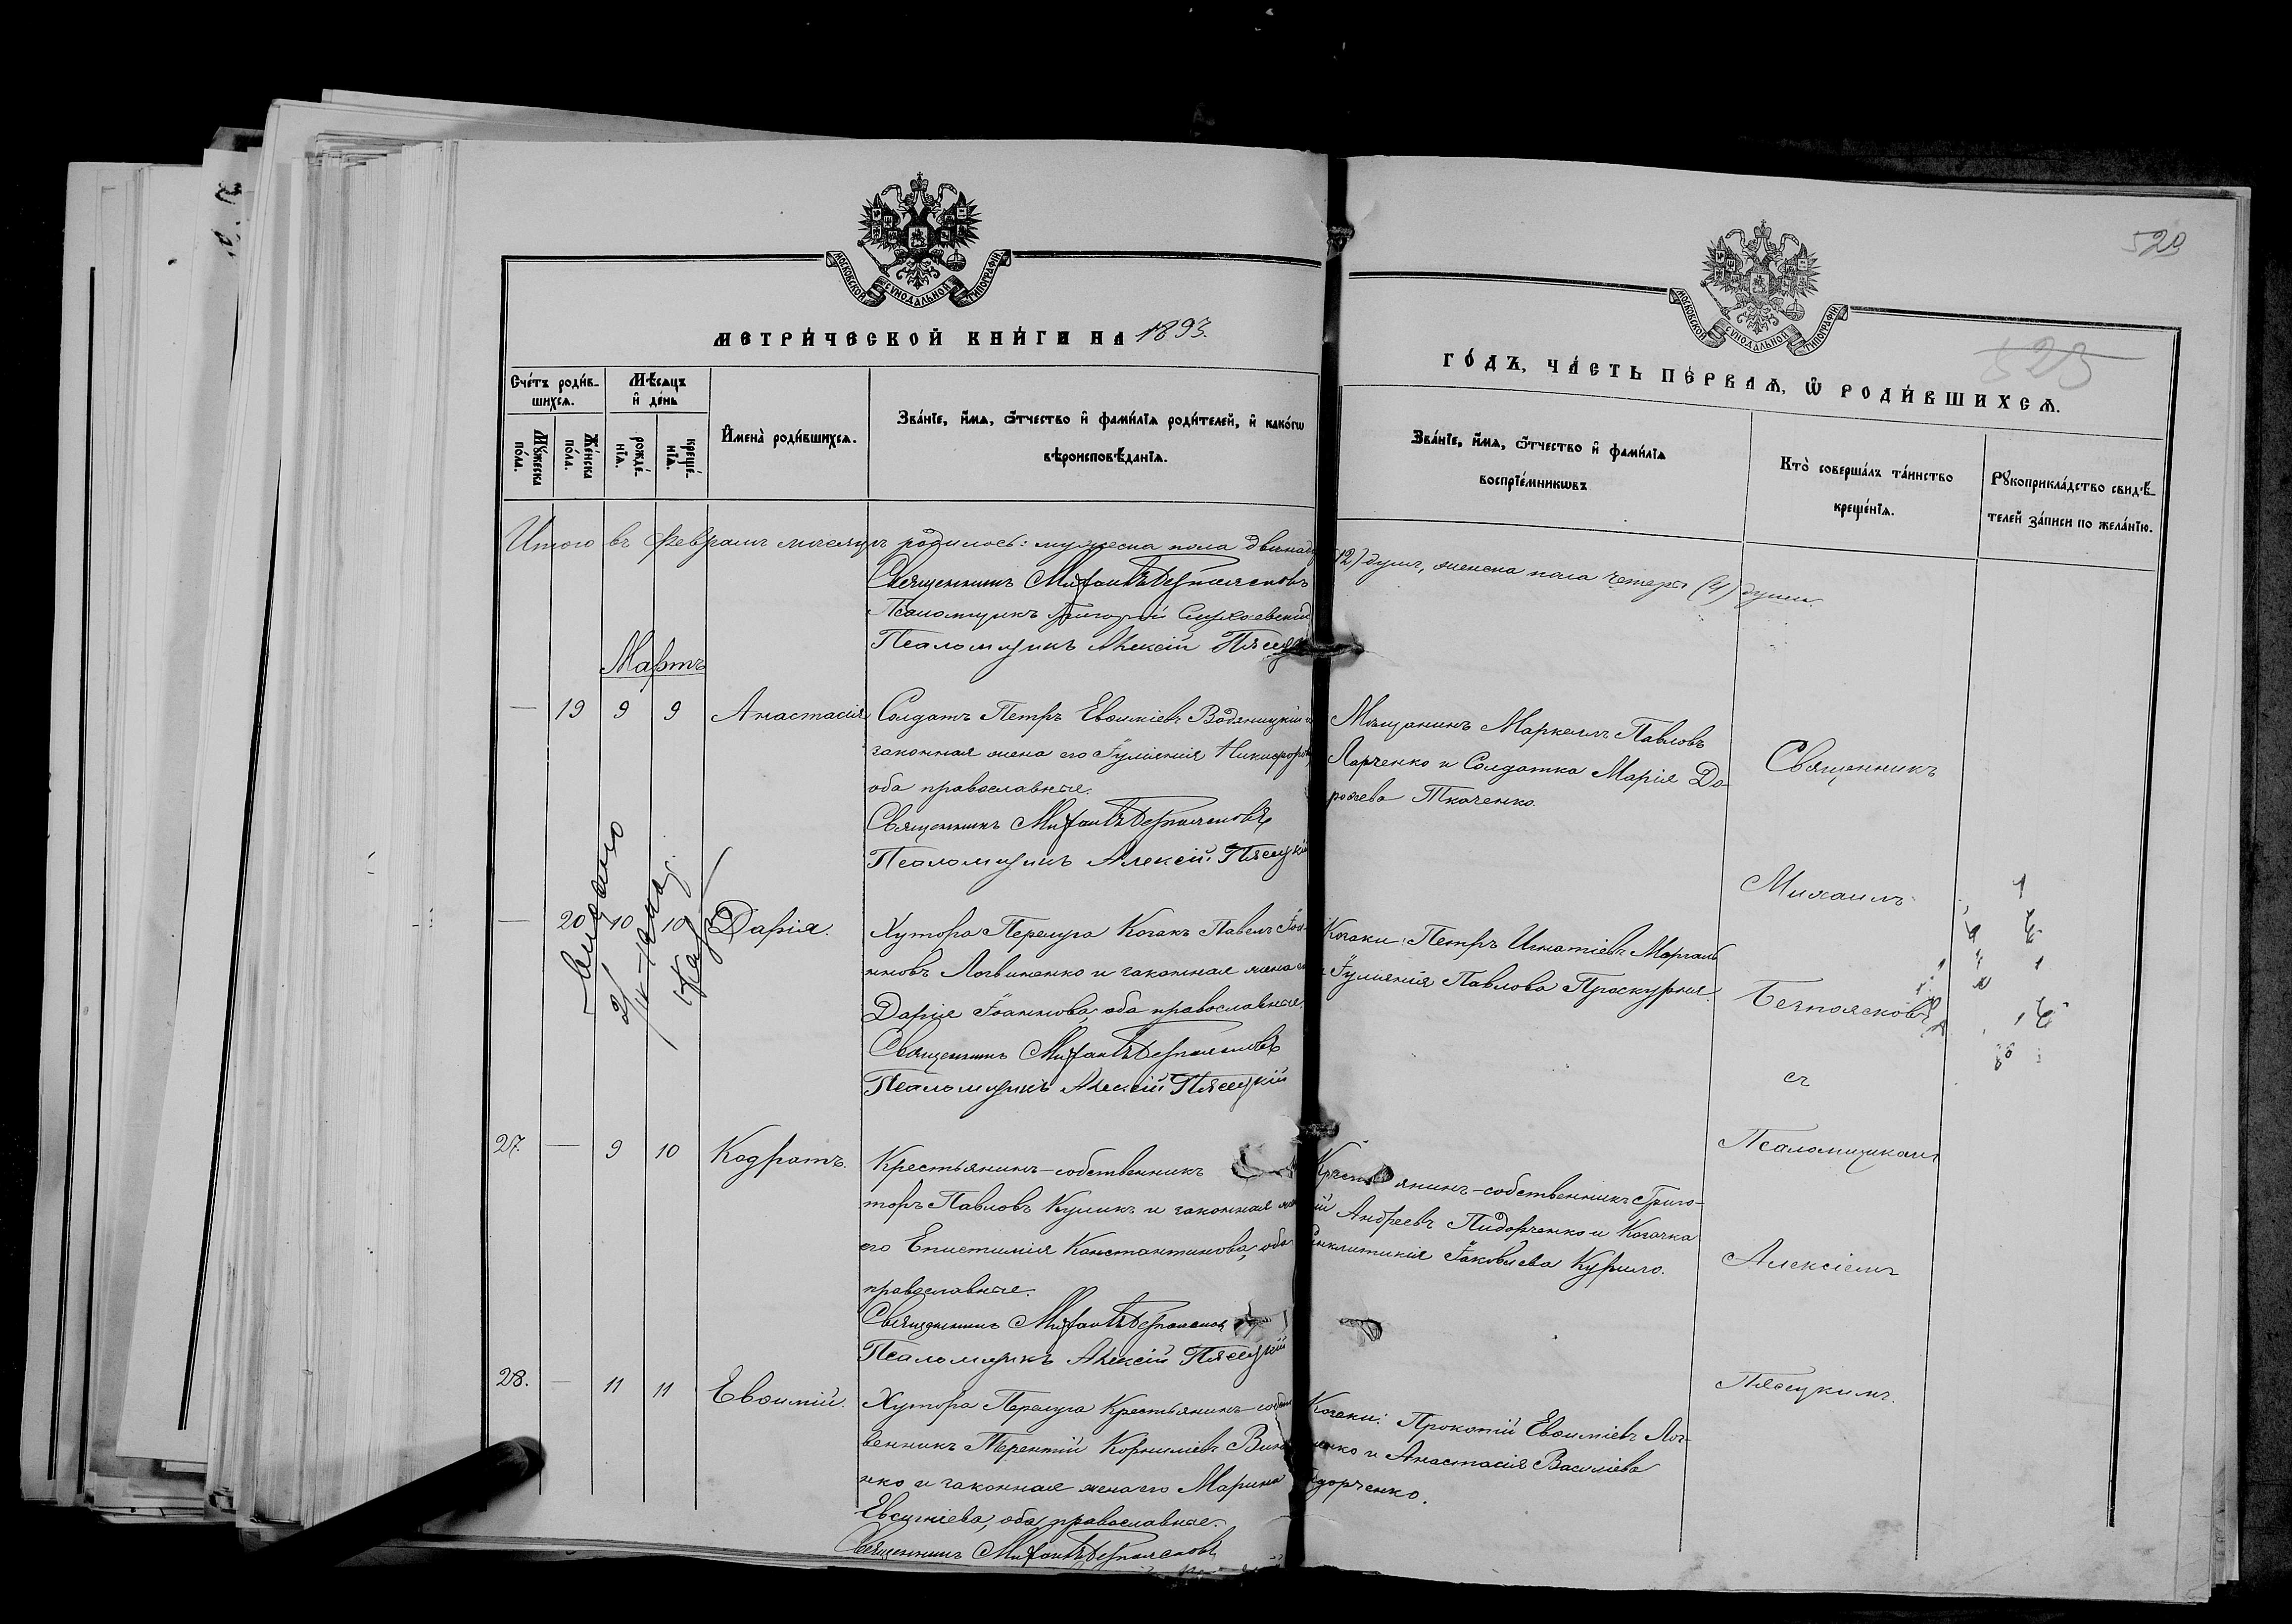 МОСКОВСКОЙ СѴНОДАЛЬНОЙ ТИПОГРАФІИ
МЕТРИ́ЧЕСКОЙ КНИ́ГИ НА 1893.
Сче́тъ роди́в-
шихсѧ.
Мѣ́сѧцъ
и҆ де́нь
Мꙋ́жеска
по́ла.
Же́нска
по́ла.
рожде́-
нїѧ.
креще́-
нїѧ.
И҆мена̀ роди́вшихсѧ.
Зва́нїе, и҆́мѧ, ѻ҆́тчество и҆ фами́лїѧ роди́телей, и҆ како́гѡ
вѣроисповѣ́данїѧ.
Итого въ Февралѣ мѣсяцѣ родилось: мужеска пола двѣнадц
Священникъ Михаилъ Безпоясковъ
Псаломщикъ Григорій
Псаломщикъ Алексій Пясецкій
Мартъ
— 19 9 9 Анастасія
Солдатъ Петръ Евѳиміевъ Водяницкій и
законная жена его Іуліанія Никифоров
оба православные.
Священникъ Михаилъ Безпоясковъ
Псаломщикъ Алексій Пясецкій
— 20 10 10 Дарія.
Хутора Перелуга Козакъ Павелъ Іоа-
нновъ Логвиненко и законная жена его
Дарія Іоаннова, оба православные.
Священникъ Михаилъ Безпоясковъ
Псаломщикъ Алексій Пясецкій
27. — 9 10 Кодратъ.
Крестьянинъ-собственникъ
торъ Павловъ Куликъ и законная жена
его Епистимія Константинова, оба
православные.
Священникъ Михаилъ Безпоясковъ
Псаломщикъ Алексій Пясецкій
28. — 11 11 Евѳимій.
Хутора Перелуга Крестьянинъ-собст
венникъ Терентій Корниліевъ Вин
нко и законная жена его Марина
Евсиѳіева, оба православные.
Священникъ Михаилъ Безпоясковъ
520
523
МОСКОВСКОЙ СѴНОДАЛЬНОЙ ТИПОГРАФІИ
ГО́ДЪ, ЧА́СТЬ ПЕ́РВАѦ, Ѡ҆ РОДИ́ВШИХСѦ.
Зва́нїе, и҆́мѧ, ѻ҆́тчество и҆ фами́лїѧ
воспрїе́мникѡвъ
Кто̀ соверша́лъ та́инство
креще́нїѧ.
Рꙋкоприкла́дство свидѣ́-
телей за́писи по жела́нїю.
(12) душъ, женска пола четыре (4) души.
Мѣщанинъ Маркеллъ Павловъ
Ларченко и Солдатка Марія До-
роѳеева Ткаченко.
Козаки: Петръ Игнатіевъ Моргаль
Іуліанія Павлова Проскурня.
Крестьянинъ-собственникъ Григо-
ій Андреевъ Пидорченко и Козачка
нклитикія Іаковлева Курило.
Козаки: Прокопій Евѳиміевъ Лог-
ненко и Анастасія Василіева
идорченко.
Священникъ
Михаилъ
Безпоясковъ
съ
Псаломщикомъ
Алексіемъ
Пясецкимъ.